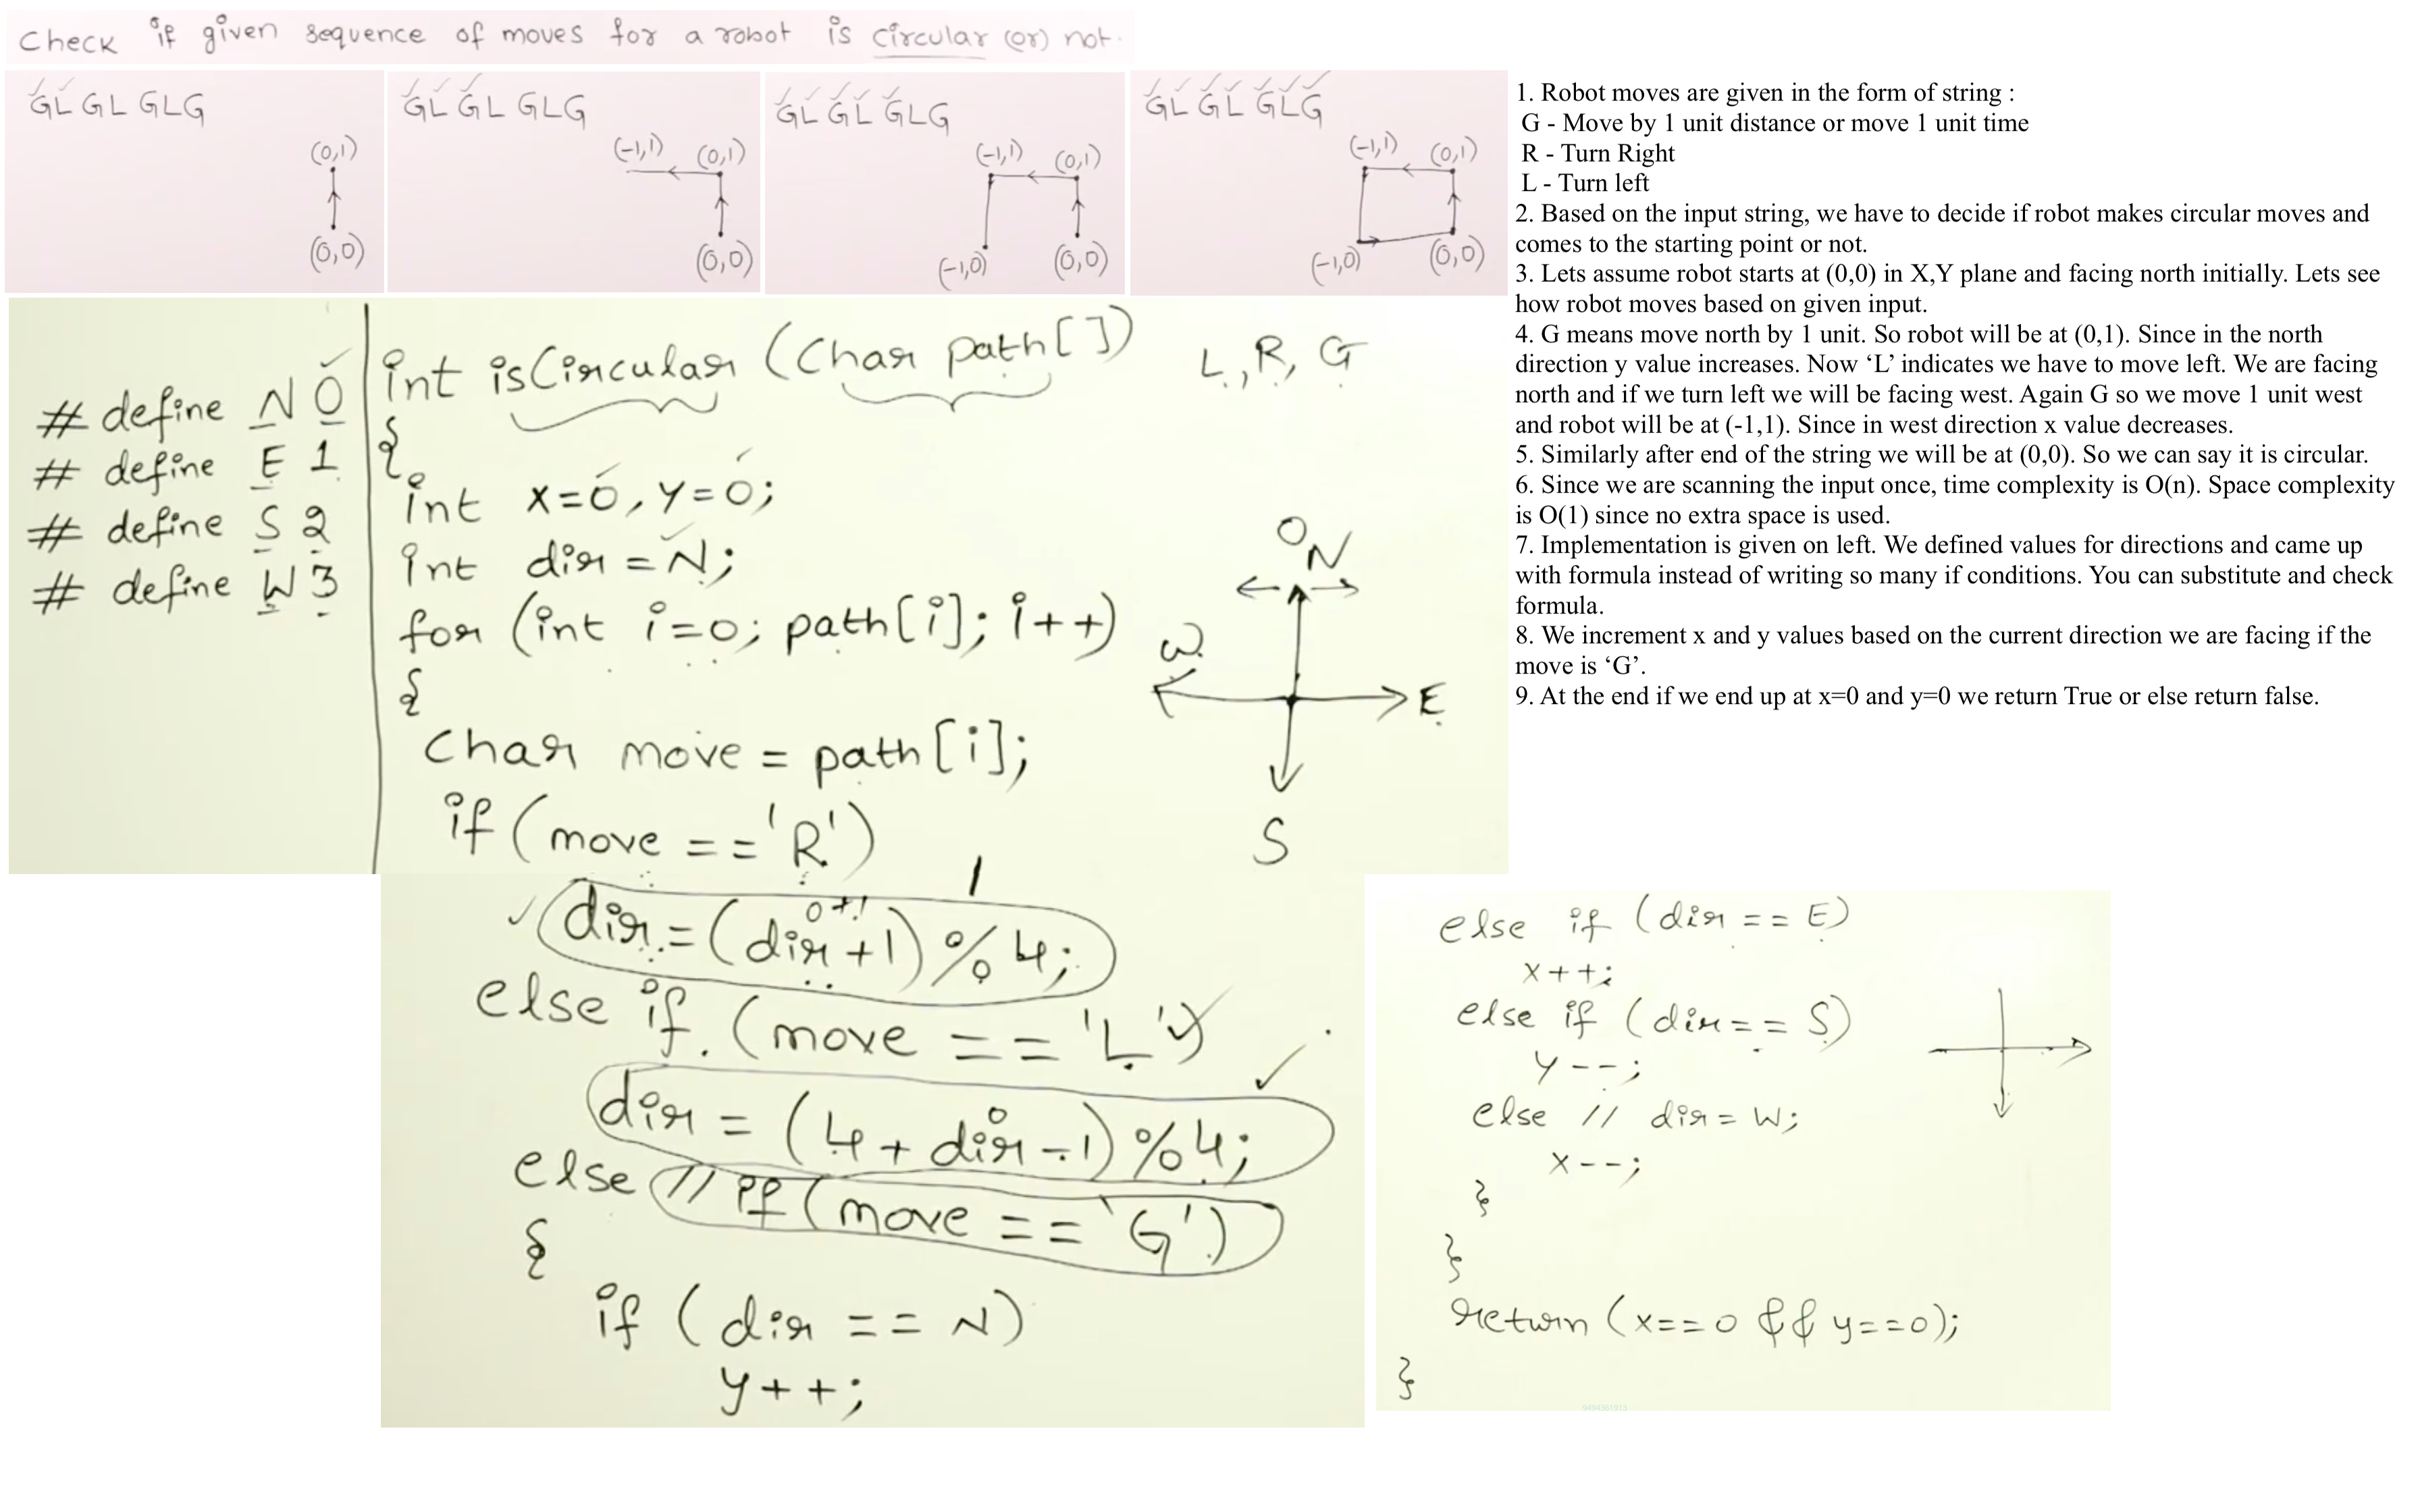 Check if given sequence of moves for a robot is circular (or) not.
GL GL GLG
(0,1)
(0,0)
GL GL GLG
(-1,1) (0,1)
(0,0)
GL GL GLG
(-1,1) (0,1)
(-1,0) (0,0)
GL GL GLG
(-1,1) (0,1)
(-1,0) (0,0)
# define N 0
# define E 1
# define S 2
# define W 3
int isCircular (Char path[])
{
int x=0, y=0;
int dir = N;
for (int i=0; path[i]; i++)
{
Char move = path[i];
if (move == 'R')
L, R, G
0 N
W
E
S
1
0+1
dir = (dir+1) % 4;
else if (move == 'L')
0
dir = (4 + dir - 1) % 4;
else // if (move == 'G')
{
if (dir == N)
y++;
else if (dir == E)
x++;
else if (dir == S)
y--;
else // dir = W;
x--;
}
}
return (x==0 && y==0);
}
9494361913
1. Robot moves are given in the form of string :
G - Move by 1 unit distance or move 1 unit time
R - Turn Right
L - Turn left
2. Based on the input string, we have to decide if robot makes circular moves and
comes to the starting point or not.
3. Lets assume robot starts at (0,0) in X,Y plane and facing north initially. Lets see
how robot moves based on given input.
4. G means move north by 1 unit. So robot will be at (0,1). Since in the north
direction y value increases. Now ‘L’ indicates we have to move left. We are facing
north and if we turn left we will be facing west. Again G so we move 1 unit west
and robot will be at (-1,1). Since in west direction x value decreases.
5. Similarly after end of the string we will be at (0,0). So we can say it is circular.
6. Since we are scanning the input once, time complexity is O(n). Space complexity
is O(1) since no extra space is used.
7. Implementation is given on left. We defined values for directions and came up
with formula instead of writing so many if conditions. You can substitute and check
formula.
8. We increment x and y values based on the current direction we are facing if the
move is ‘G’.
9. At the end if we end up at x=0 and y=0 we return True or else return false.